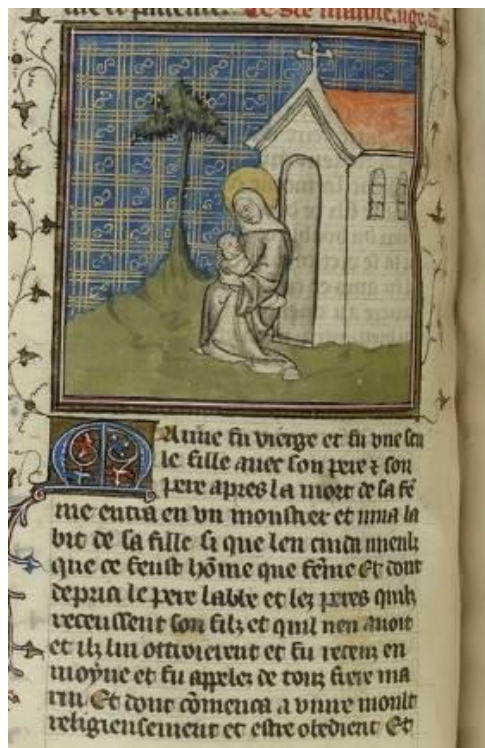 De Ste marine. vige.
Marine fu vierge et fu vne seu
le fille auec son pere ⁊ son
pere apres la mort de sa fē
me entra en vn monstier et mua la
bit de sa fille si que len cuida mieulz
que ce feust hōme que fēme Et dont
depria le pere labbe et lez peres quilz
receussent son filz et quil nen auoit
et ilz lui ottroierent et fu receu en
moyne et fu appelez de touz frere ma
rin Et dont cōmenca a viure moult
religieusement et estre obedient Et